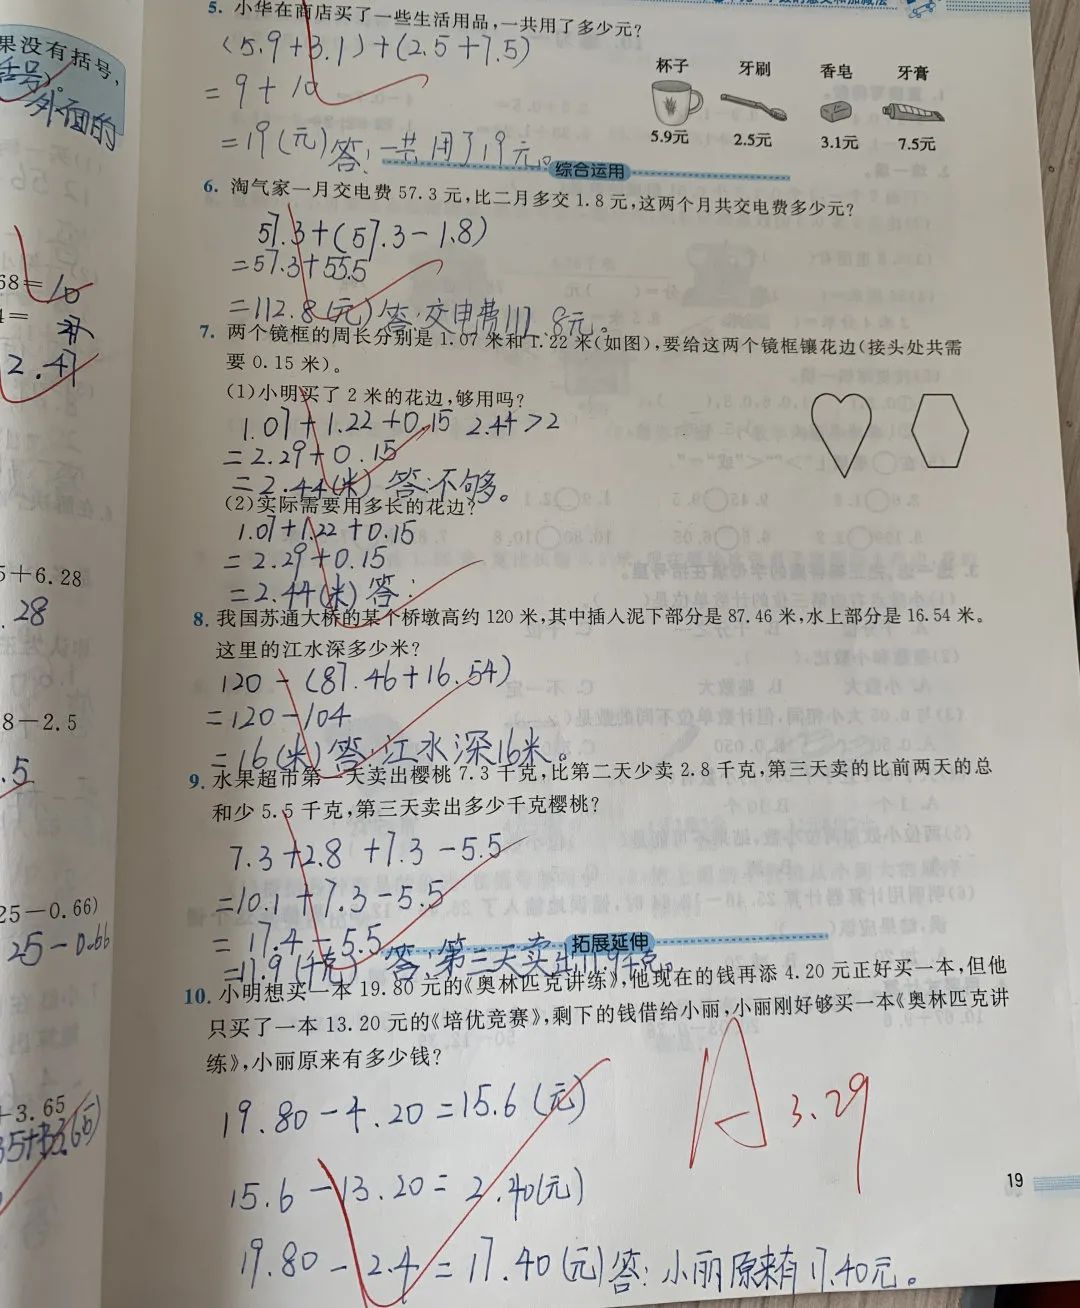 果没有括号,
括号)。
外面的
68=10
4=
补
2.47
5+6.28
28
8-2.5
.5
25-0.66)
25-0.66
+3.65
5. 小华在商店买了一些生活用品,一共用了多少元?
(5.9+3.1)+(2.5+7.5)
=9+10
=19(元) 答:一共用了19元。
杯子 牙刷 香皂 牙膏
5.9元 2.5元 3.1元 7.5元
综合运用
6. 淘气家一月交电费 57.3 元,比二月多交 1.8 元,这两个月共交电费多少元?
57.3+(57.3-1.8)
=57.3+55.5
=112.8(元) 答:交电费111.8元。
7. 两个镜框的周长分别是 1.07 米和 1.22 米(如图),要给这两个镜框镶花边(接头处共需
要 0.15 米)。
(1)小明买了 2 米的花边,够用吗?
1.07+1.22+0.15 2.44>2
=2.29+0.15
=2.44(米) 答:不够。
(2)实际需要用多长的花边?
1.07+1.22+0.15
=2.29+0.15
=2.44(米) 答:
8. 我国苏通大桥的某个桥墩高约 120 米,其中插入泥下部分是 87.46 米,水上部分是 16.54 米。
这里的江水深多少米?
120-(87.46+16.54)
=120-104
=16(米) 答:江水深16米。
9. 水果超市第一天卖出樱桃 7.3 千克,比第二天少卖 2.8 千克,第三天卖的比前两天的总
和少 5.5 千克,第三天卖出多少千克樱桃?
7.3+2.8+7.3-5.5
=10.1+7.3-5.5
=17.4-5.5
=11.9(千克) 答:第三天卖出11.9千克。
拓展延伸
10. 小明想买一本 19.80 元的《奥林匹克讲练》,他现在的钱再添 4.20 元正好买一本,但他
只买了一本 13.20 元的《培优竞赛》,剩下的钱借给小丽,小丽刚好够买一本《奥林匹克讲
练》,小丽原来有多少钱?
19.80-4.20=15.6(元)
15.6-13.20=2.40(元)
19.80-2.4=17.40(元) 答:小丽原来有17.40元。
A 3.29
19